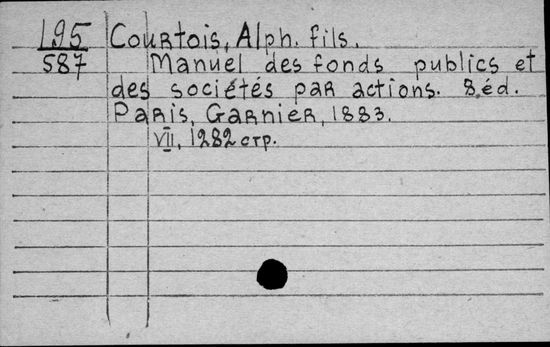 195 Courtois, Alph. fils.
587 Manuel des fonds publics et
des sociétés par actions. 8 éd.
Paris, Garnier, 1883.
VII, 1282 стр.